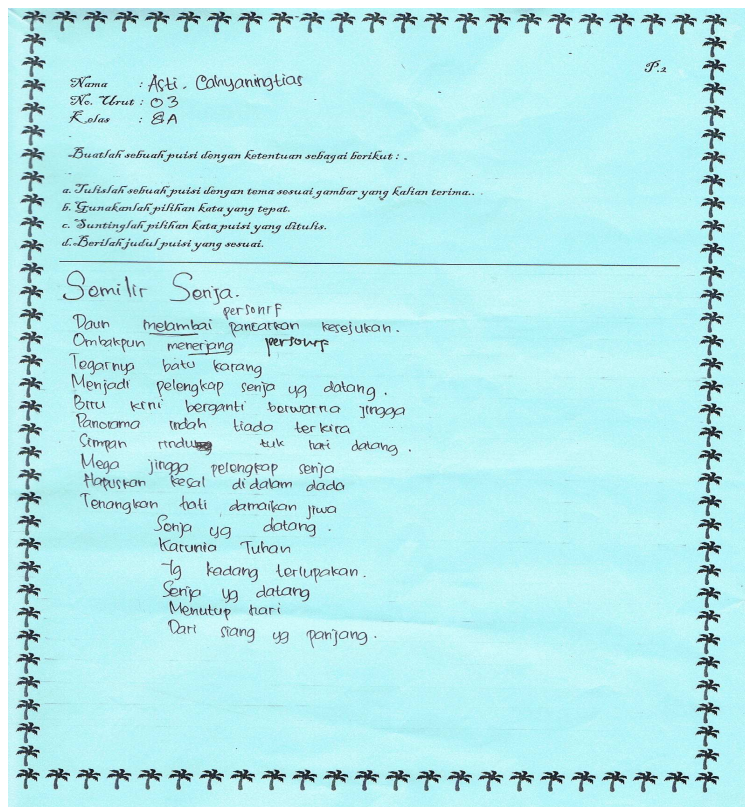 P.2
Nama : Asti. Cahyaningtias
No. Urut : 03
Kelas : 8A
Buatlah sebuah puisi dengan ketentuan sebagai berikut : .
a. Tulislah sebuah puisi dengan tema sesuai gambar yang kalian terima..
b. Gunakanlah pilihan kata yang tepat.
c. Suntinglah pilihan kata puisi yang ditulis.
d. Berilah judul puisi yang sesuai.
Semilir Senja.
personif
Daun melambai pancarkan kesejukan.
Ombakpun menerjang personif
Tegarnya batu karang
Menjadi pelengkap senja yg datang.
Biru kini berganti berwarna jingga
Panorama indah tiada terkira
Simpan rindu tuk hari datang.
Mega jingga pelengkap senja
Hapuskan kesal didalam dada
Tenangkan hati damaikan jiwa
Senja yg datang.
Karunia Tuhan
Yg kadang terlupakan.
Senja yg datang
Menutup hari
Dari siang yg panjang.